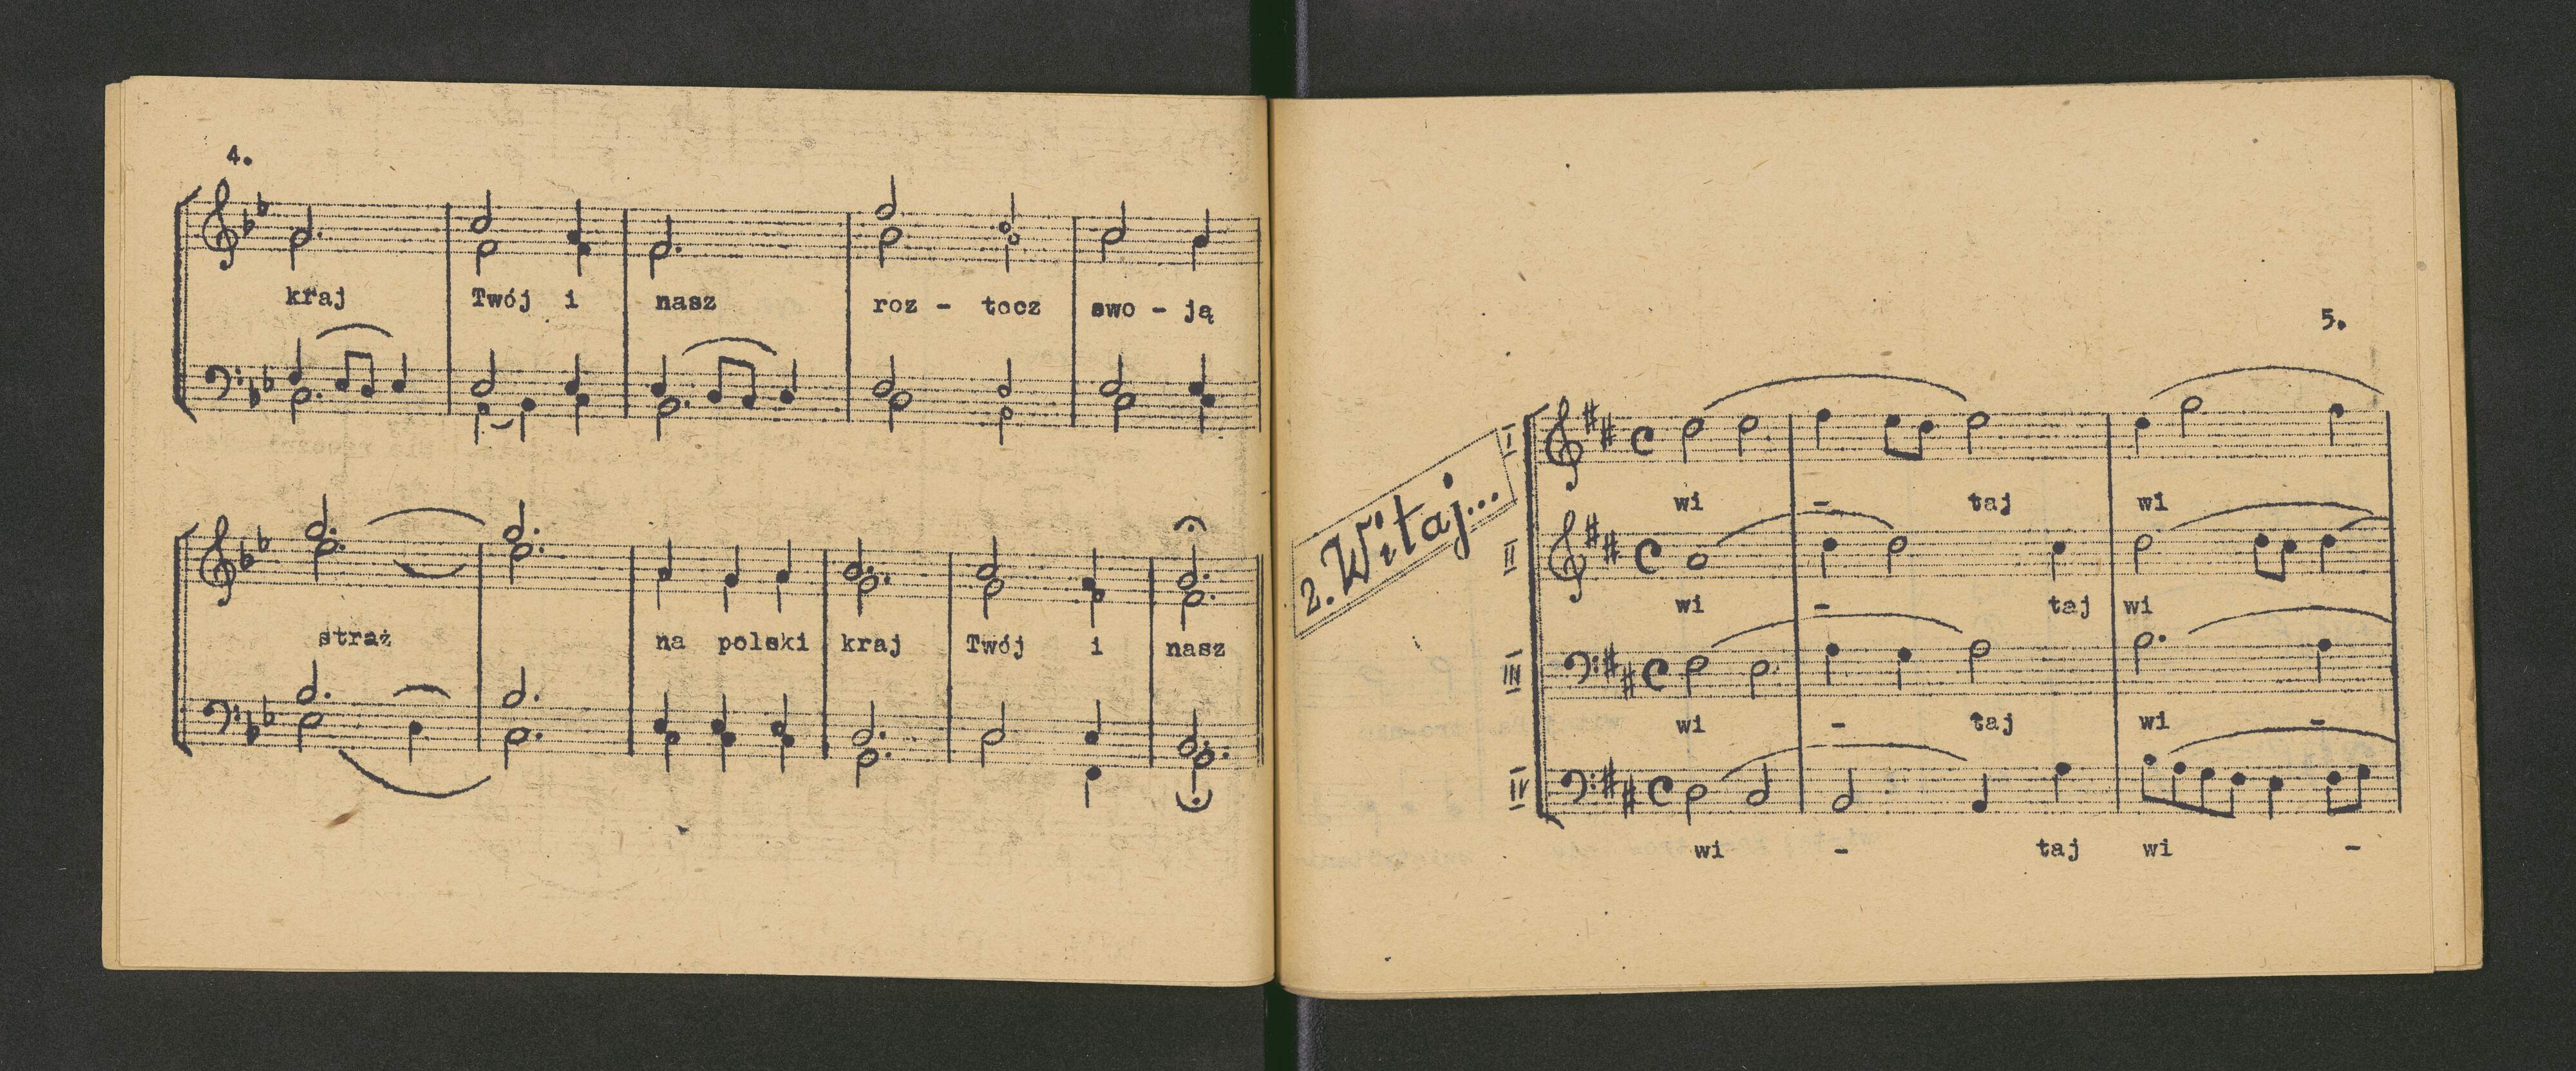 4.
kraj Twój i nasz roz - tocz swo - ją
straż na polski kraj Twój i nasz
5.
2. Witaj...
I
wi - taj wi
II
wi - taj wi
III
wi - taj wi -
IV
wi - taj wi -